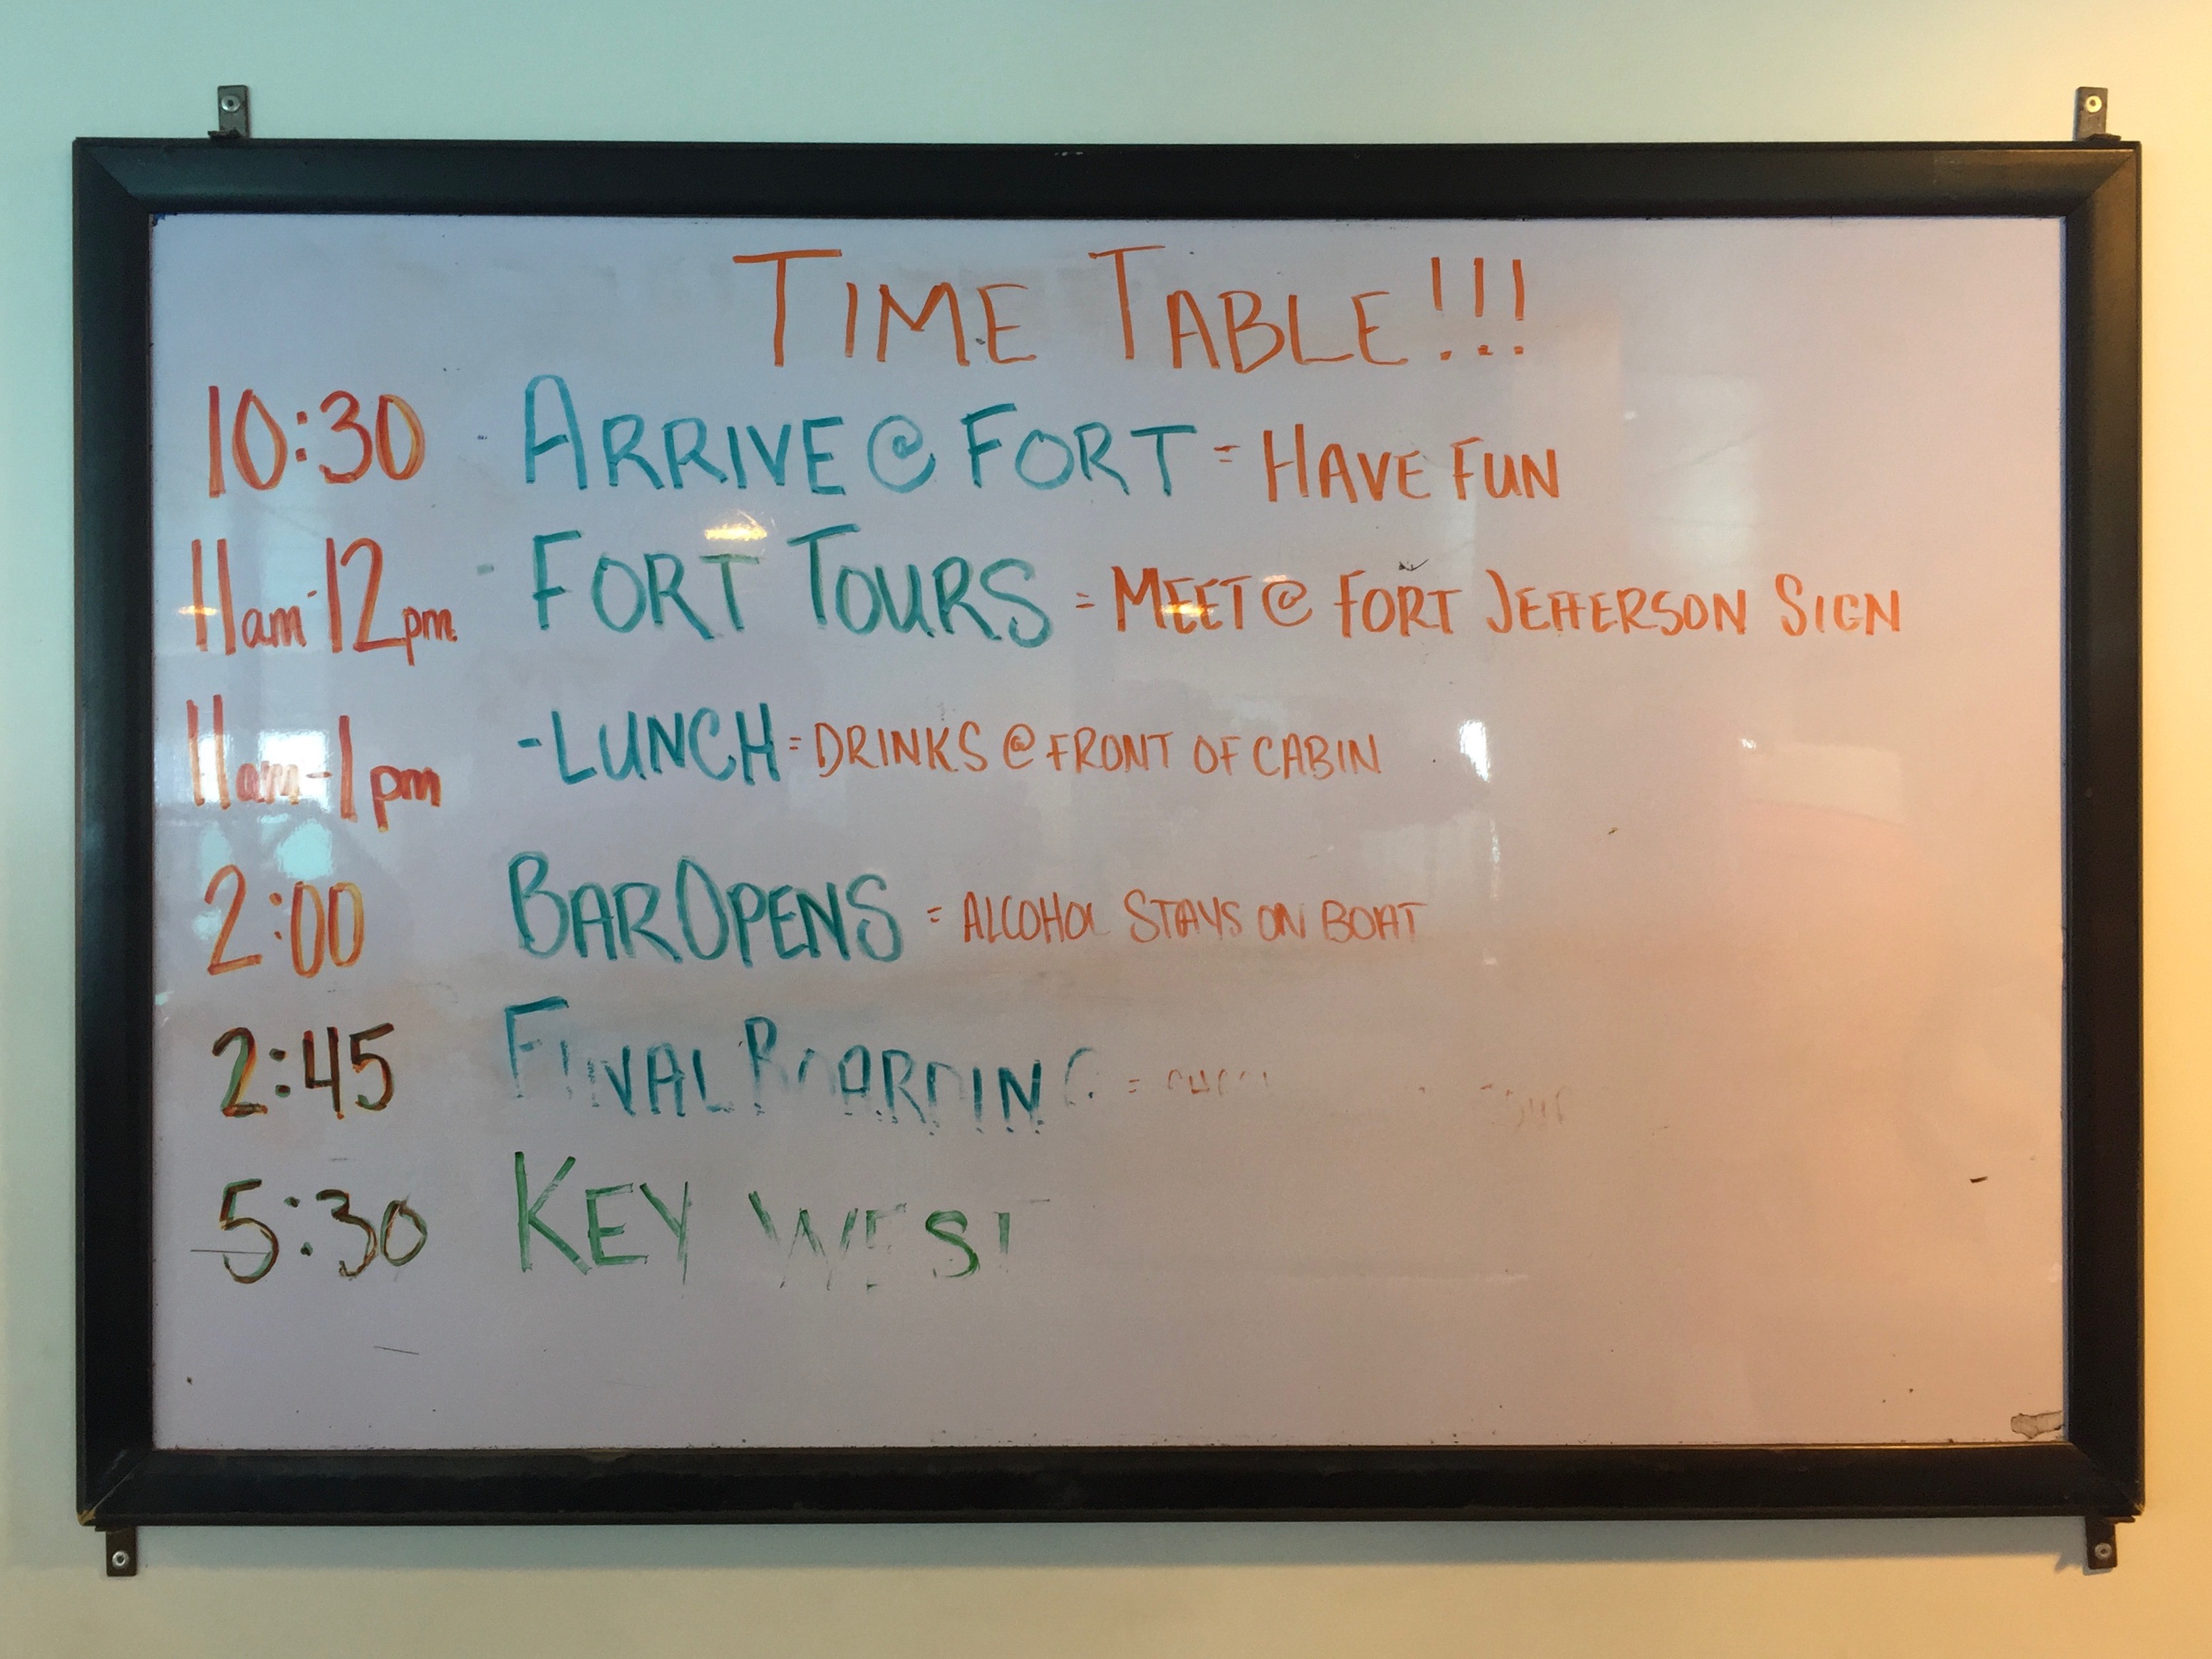 TIME TABLE!!!
10:30 - ARRIVE @ FORT = HAVE FUN
11am-12pm - FORT TOURS = MEET @ FORT JEFFERSON SIGN
11am-1pm - LUNCH = DRINKS @ FRONT OF CABIN
2:00 BAR OPENS = ALCOHOL STAYS ON BOAT
2:45 FINAL BOARDING =
5:30 KEY WEST